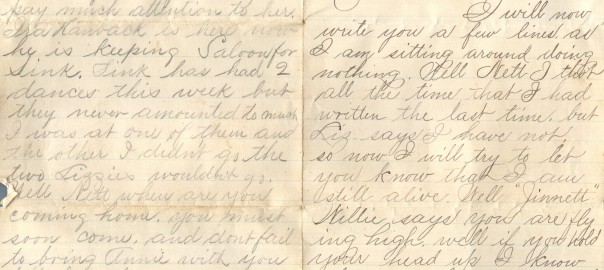 pay much attention to her.
Ira Kanvack is here now
he is keeping Saloon for
Fink. Fink has had 2
dances this week but
they never amounted to much
I was at one of them and
the other I didnt go the
two Lizzies wouldnt go.
Well Nett when are you
coming home. you must
soon come. and dont fail
to bring Annie with you
I will now
write you a few lines as
I am sitting around doing
nothing. Well Nett I thot
all the time that I had
written the last time. but
Liz says I have not.
so now I will try to let
you know that I am
still alive. Well "Jinnett"
Willie says you are fly
ing high. well if you hold
your head up I know